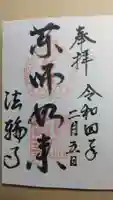 奉拝
令和四年
二月五日
薬師如来
法輪寺